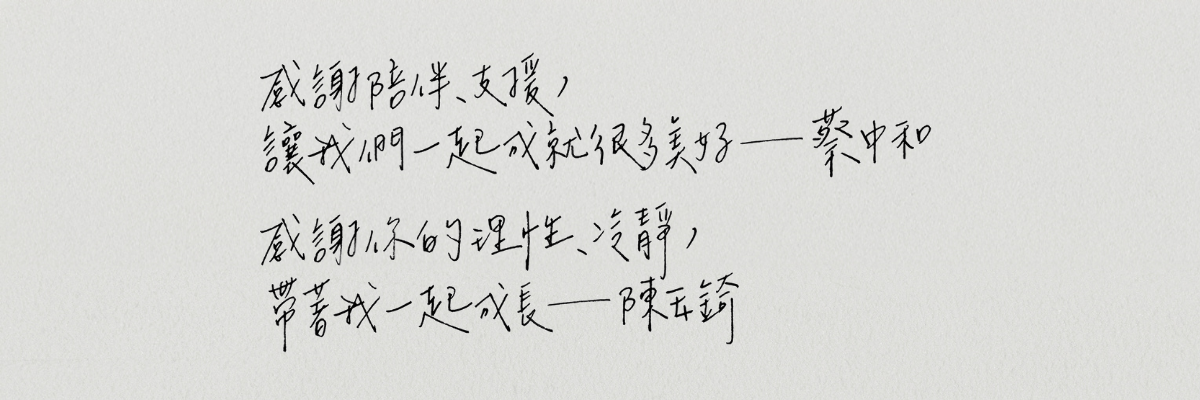 感謝陪伴、支援，
讓我們一起成就很多美好——蔡中和
感謝你的理性、冷靜，
帶著我一起成長——陳玉錡